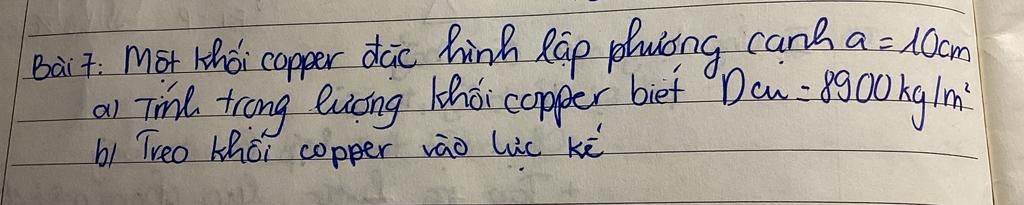 Bài 7: Một khối copper đặc hình lập phương cạnh a = 10cm
a) Tính trọng lượng khối copper biết Dcu = 8900kg/m²
b) Treo khối copper vào lực kế